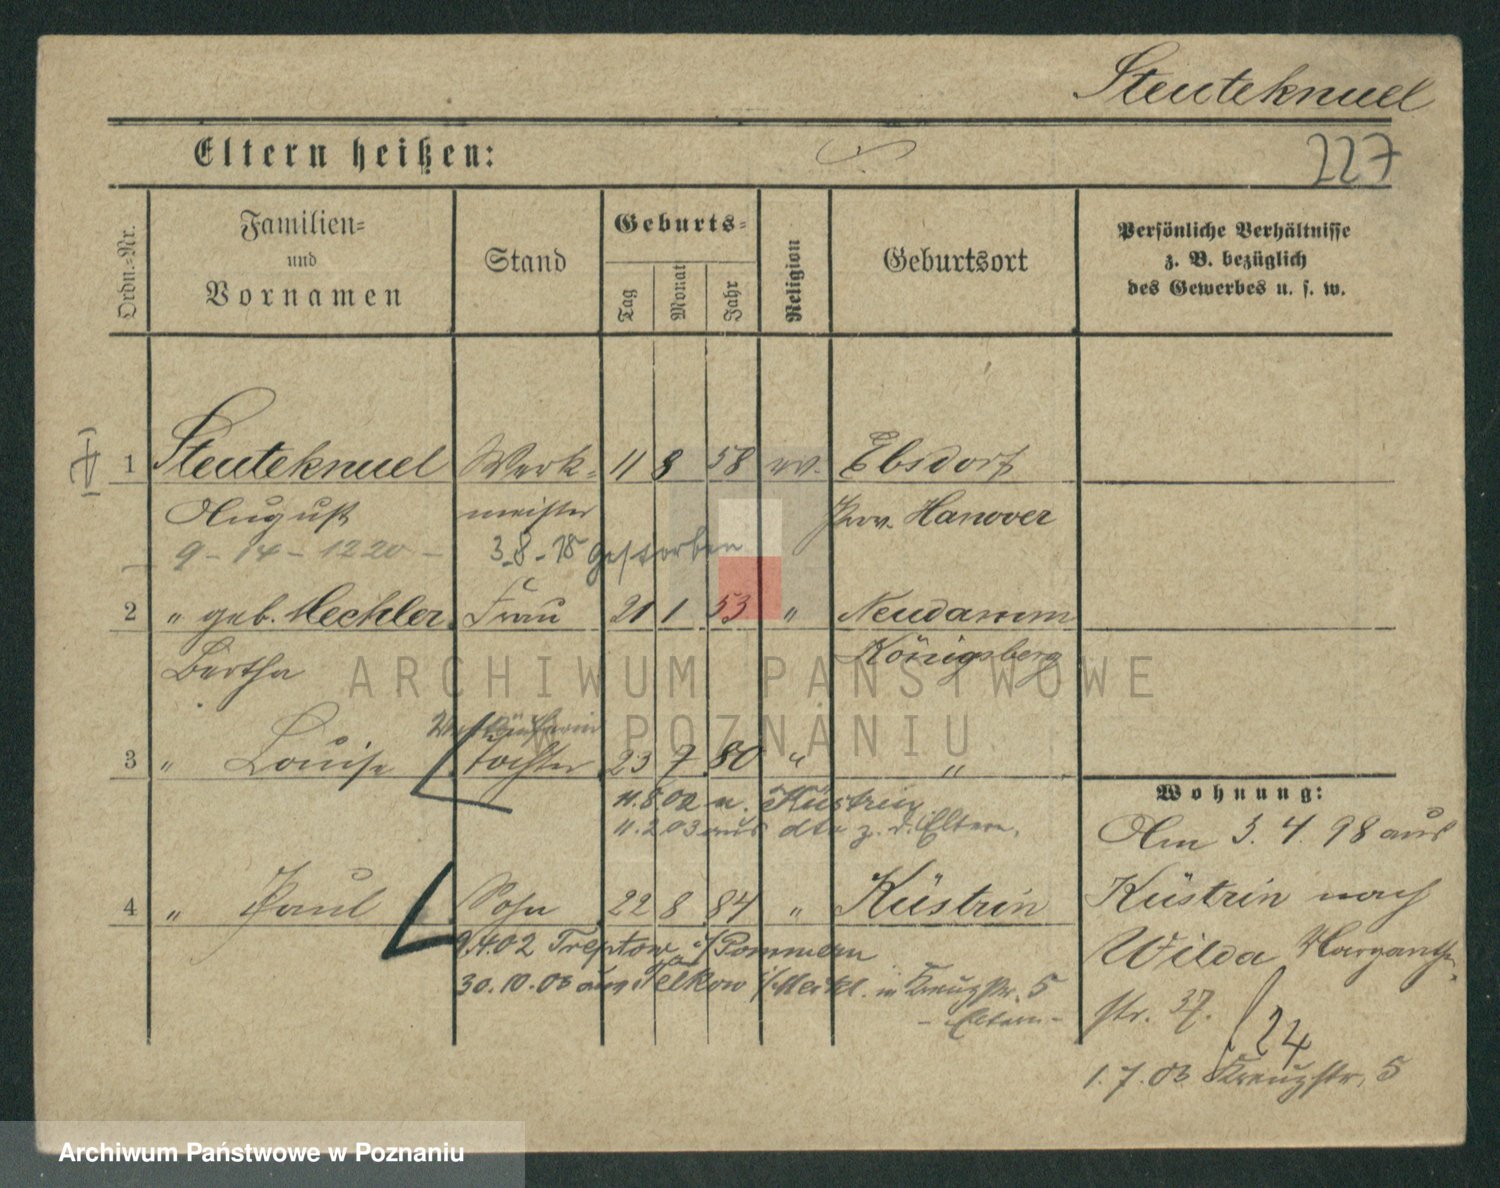 Steuteknuel
Eltern heißen:
227
Ordn.-Nr.
Familien-
und
Vornamen
Stand
Geburts-
Tag
Monat
Jahr
Religion
Geburtsort
Persönliche Verhältnisse
z. B. bezüglich
des Gewerbes u. s. w.
1 Steuteknuel Werk- 11 8 58 ev. Ebsdorf
August meister Prov. Hanover
9-14-1220- 3.8.18 gestorben
2 " geb. Mechler Frau 21 1 53 " Neudamm
Bertha Königsberg
ARCHIWUM PAŃSTWOWE
W POZNANIU
3 " Louise Tochter 23 7 80 " "
Wohnung:
11.8.02 n. Küstrin
11.2.03 aus dto z. d. Eltern.
Am 3.4.98 aus
4 " Paul Sohn 22 8 84 " Küstrin
Küstrin nach
9.4.02 Treptow a/ Pommern
Wilda
30.10.03 aus Telkow i/Meckl. in Kreuzstr. 5
- Eltern -
str. 37.
24
1.7.03 Kreuzstr. 5
Archiwum Państwowe w Poznaniu